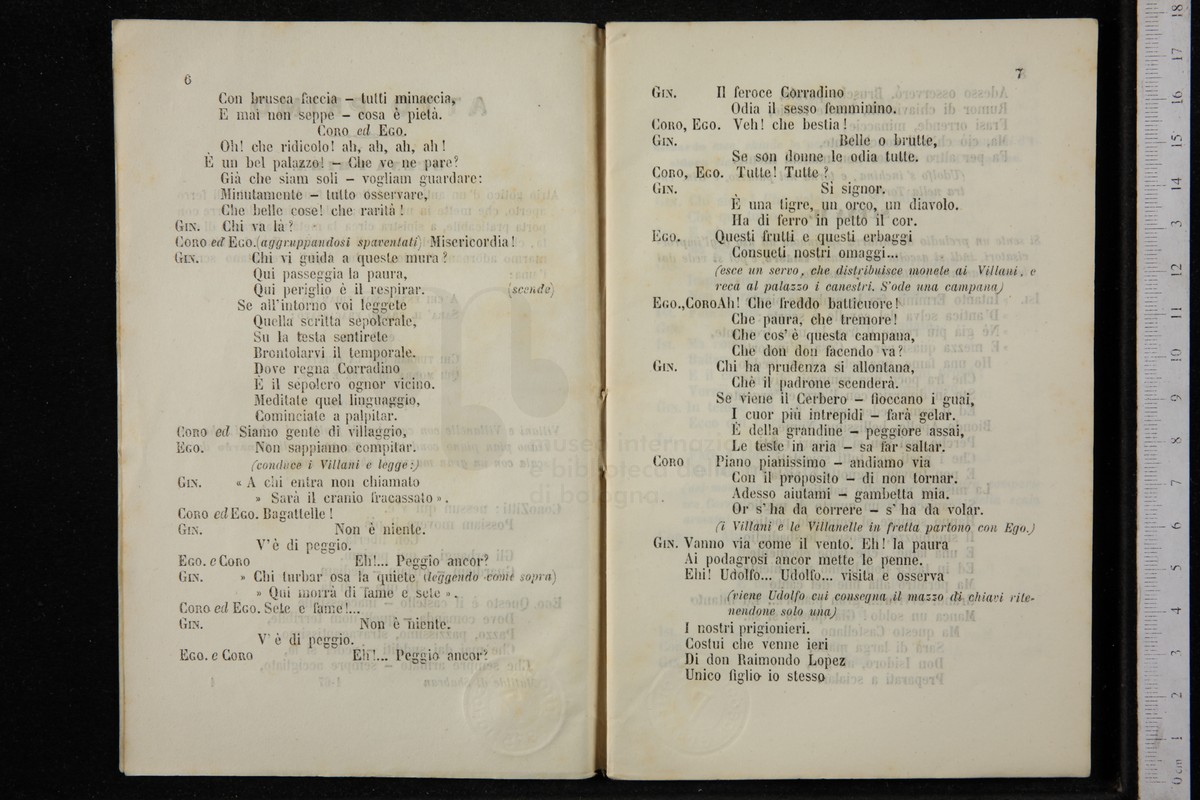 6
Con brusca faccia – tutti minaccia,
E mai non seppe – cosa è pietà.
CORO ed EGO.
Oh! che ridicolo! ah, ah, ah, ah!
È un bel palazzo! – Che ve ne pare?
Già che siam soli – vogliam guardare:
Minutamente – tutto osservare,
Che belle cose! che rarità!
GIN. Chi va là?
CORO ed EGO. (aggruppandosi spaventati) Misericordia!
GIN. Chi vi guida a queste mura?
Qui passeggia la paura,
Qui periglio è il respirar. (scende)
Se all'intorno voi leggete
Quella scritta sepolcrale,
Su la testa sentirete
Brontolarvi il temporale.
Dove regna Corradino
È il sepolcro ognor vicino.
Meditate quel linguaggio,
Cominciate a palpitar.
CORO ed Siamo gente di villaggio,
EGO. Non sappiamo compitar.
(conduce i Villani e legge:)
GIN. « A chi entra non chiamato
» Sarà il cranio fracassato ».
CORO ed EGO. Bagattelle!
GIN. Non è niente.
V'è di peggio.
EGO. e CORO Eh!... Peggio ancor?
GIN. » Chi turbar osa la quiete (leggendo come sopra)
» Qui morrà di fame e sete ».
CORO ed EGO. Sete e fame!...
GIN. Non è niente.
V'è di peggio.
EGO. e CORO Eh!... Peggio ancor?
7
GIN. Il feroce Corradino
Odia il sesso femminino.
CORO, EGO. Veh! che bestia!
GIN. Belle o brutte,
Se son donne le odia tutte.
CORO, EGO. Tutte! Tutte?
GIN. Si signor.
È una tigre, un orco, un diavolo.
Ha di ferro in petto il cor.
EGO. Questi frutti e questi erbaggi
Consueti nostri omaggi...
(esce un servo, che distribuisce monete ai Villani, e
reca al palazzo i canestri. S'ode una campana)
EGO., CORO Ah! Che freddo batticuore!
Che paura, che tremore!
Che cos' è questa campana,
Che don don facendo va?
GIN. Chi ha prudenza si allontana,
Chè il padrone scenderà.
Se viene il Cerbero – fioccano i guai,
I cuor più intrepidi – farà gelar.
È della grandine – peggiore assai,
Le teste in aria – sa far saltar.
CORO Piano pianissimo – andiamo via
Con il proposito – di non tornar.
Adesso aiutami – gambetta mia.
Or s' ha da correre – s' ha da volar.
(i Villani e le Villanelle in fretta partono con Ego.)
GIN. Vanno via come il vento. Eh! la paura
Ai podagrosi ancor mette le penne.
Ehi! Udolfo... Udolfo... visita e osserva
(viene Udolfo cui consegna il mazzo di chiavi rite-
nendone solo una)
I nostri prigionieri.
Costui che venne ieri
Di don Raimondo Lopez
Unico figlio io stesso